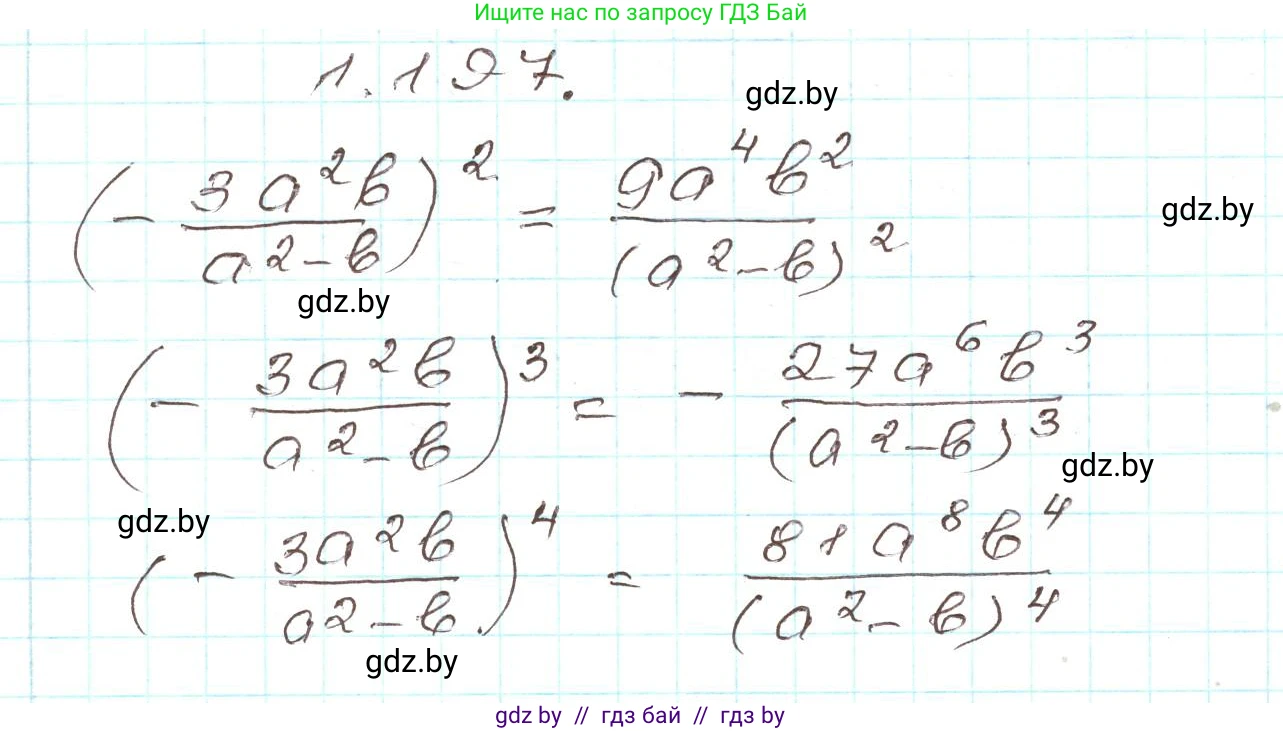 Ищите нас по запросу ГДЗ Бай
1.197.
gdz.by
(- 3a²b / a²-b)² = 9a⁴b² / (a²-b)²
gdz.by
gdz.by
(- 3a²b / a²-b)³ = - 27a⁶b³ / (a²-b)³
gdz.by
gdz.by
(- 3a²b / a²-b)⁴ = 81a⁸b⁴ / (a²-b)⁴
gdz.by
gdz by // гдз бай // гдз by